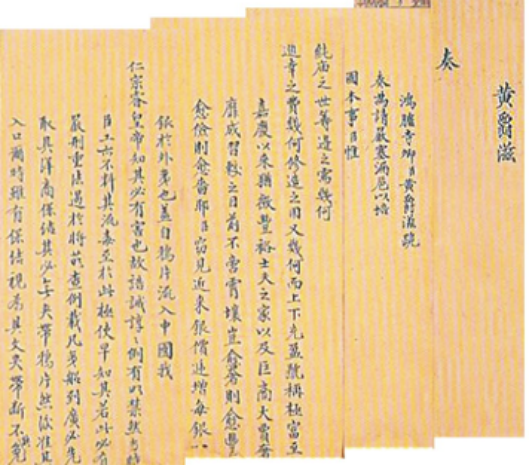 黃爵滋
奏
鴻臚寺卿臣黃爵滋跪
奏為請嚴塞漏卮以培
國本事臣惟
純廟之世籌邊之需幾何
巡幸之費幾何修造之用又幾何而上下充盈號稱極富至
嘉慶以來猶徵豐裕士夫之家以及巨商大賈奢
靡成習較之目前不啻霄壤豈愈奢則愈豐
愈儉則愈嗇耶臣竊見近來銀價遞增每銀一
銀於外夷也蓋自鴉片流入中國我
仁宗睿皇帝知其必有害也故誥誡諄諄例有明禁然當時
臣工亦不料其流毒至於此極使早知其若此必有
嚴刑重法遏於將萌查例載凡夷船到廣必先
取具洋商保結其必無夾帶鴉片然後准其
入口爾時雖有保結視為具文夾帶斷不免